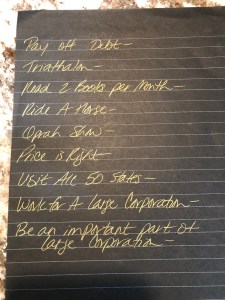 Pay off Debt-
Triathalon-
Read 2 Books per Month-
Ride A Horse-
Oprah Show-
Price is Right-
Visit All 50 States-
Work for A large Corporation-
Be an important part of
large Corporation-